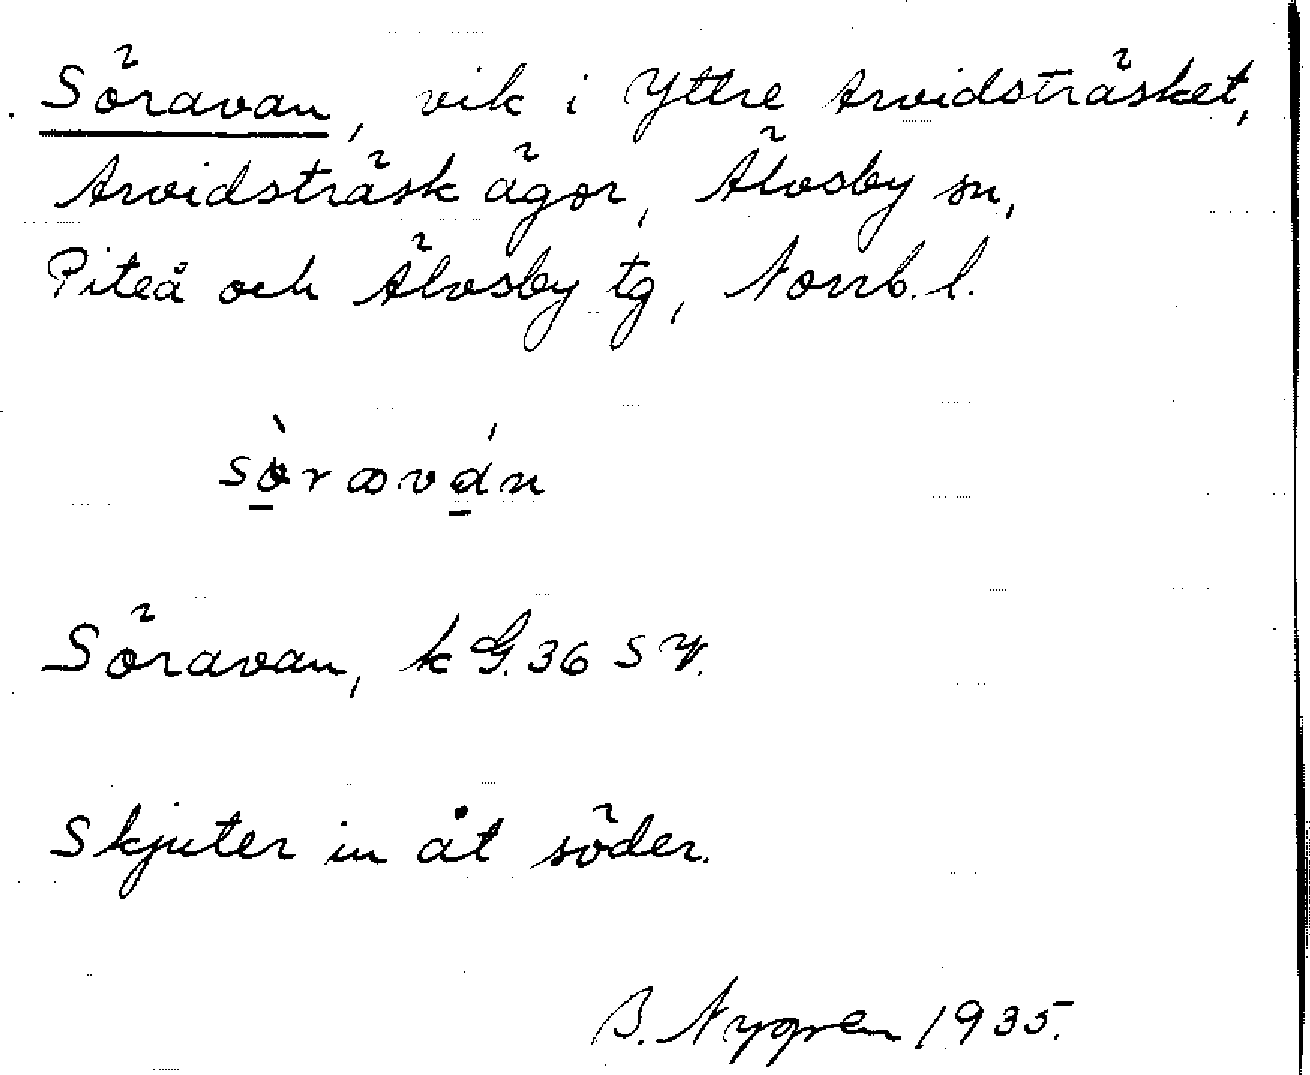 Söravan, vik i Yttre Arvidsträsket,
Arvidsträsk ägor, Älvsby sn,
Piteå och Älvsby tg, Norrb. l.
Söravan, k G. 36 S V.
Skjuter in åt söder.
B. Nygren 1935.